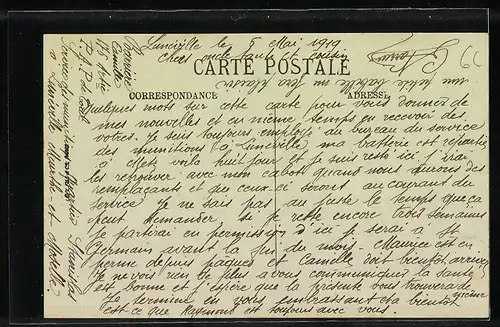 Lunéville le 5 Mai 1919
Chers oncle tante et cousin
CARTE POSTALE
CORRESPONDANCE
ADRESSE
Quelques mots sur cette carte pour vous donner de
mes nouvelles et en même temps en recevoir des
votres. Je suis toujours employé au bureau du service
des munitions à Lunéville, ma batterie est repartie
à Metz voila huit jour et je suis resté ici j'irai
les retrouver avec mon cabot quand nous aurons des
remplaçants et que ceux-ci seront au courant du
service. Je ne sais pas au juste le temps que ça
peut demander si je reste encore trois semaines
je partirai en permission d'ici je serai à St
Germain avant la fin du mois. Maurice est en
perme depuis pâques et Camille doit bientôt arriver
Je ne vois rien de plus a vous communiquer la santé
est bonne et j'espère que la présente vous trouvera de
même
Je termine en vous embrassant et a bientôt
est ce que Raymond est toujours avec vous
Camille
à Lunéville Meurthe-et-Moselle